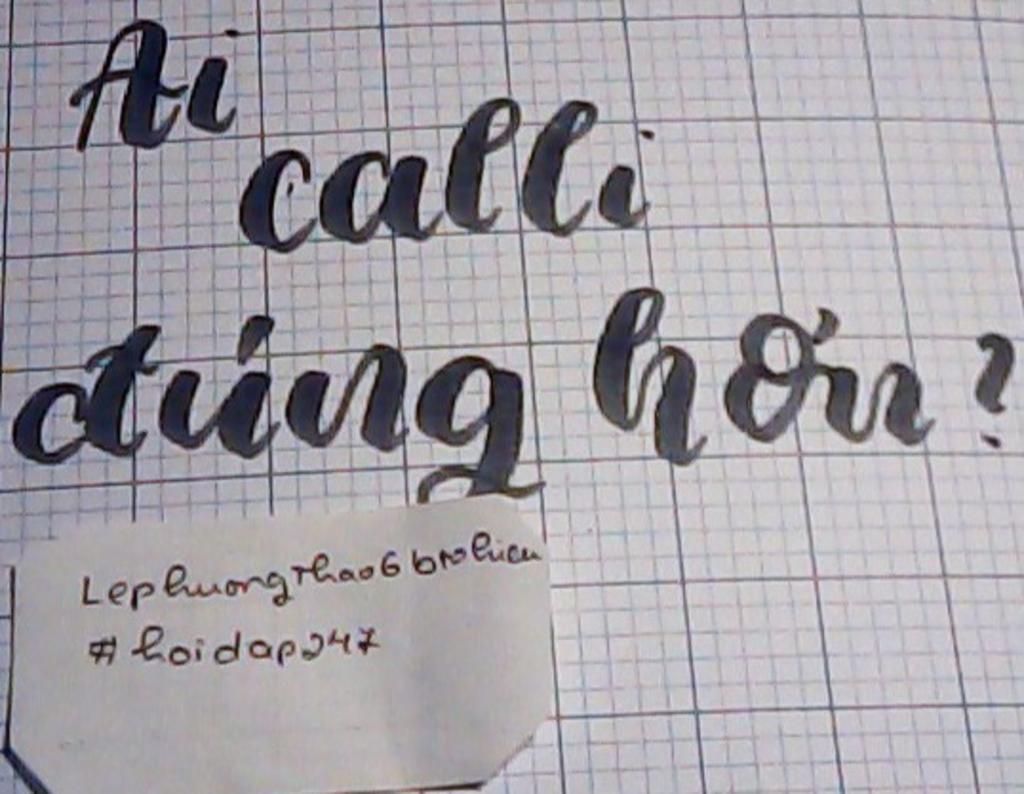 Ai
calli
đúng hơn?
LephuongThao6btohieu
#hoidap247